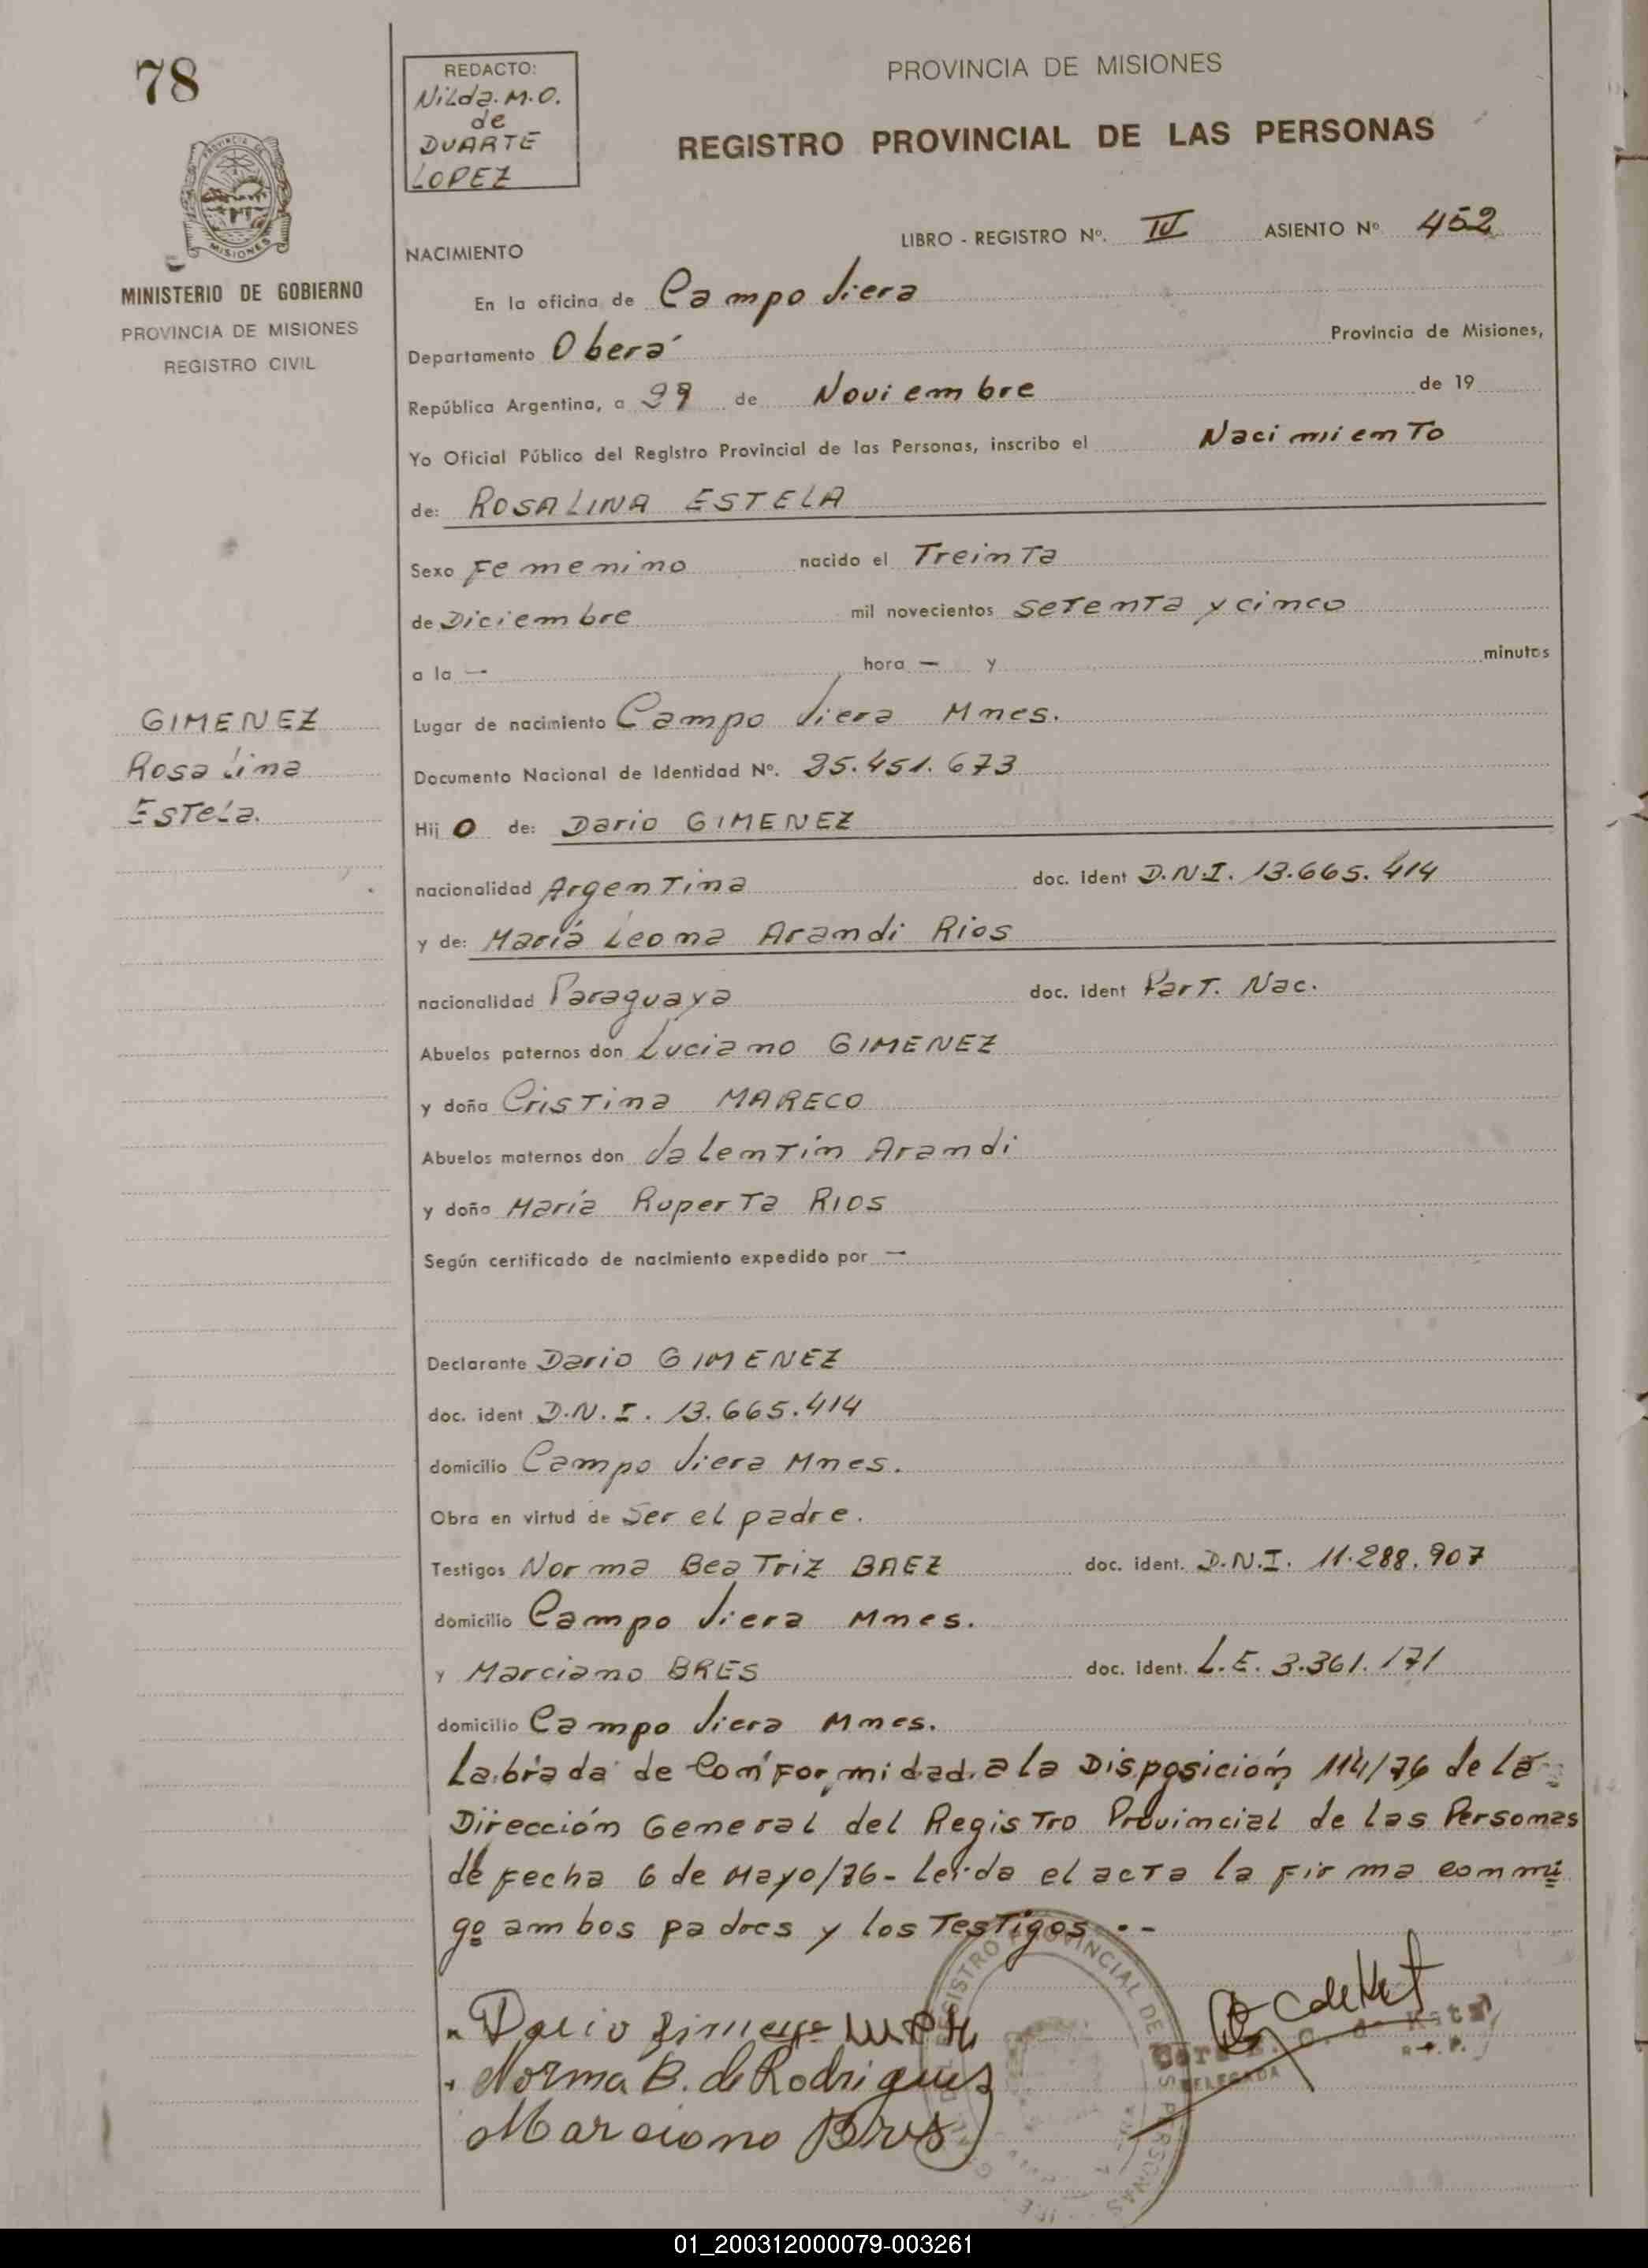 78
REDACTO:
Nilda. M.O.
de
DUARTE
LOPEZ
PROVINCIA DE MISIONES
REGISTRO PROVINCIAL DE LAS PERSONAS
PROVINCIA DE
MISIONES
MINISTERIO DE GOBIERNO
PROVINCIA DE MISIONES
REGISTRO CIVIL
LIBRO - REGISTRO Nº. IV ASIENTO Nº 452
NACIMIENTO
En la oficina de Campo Viera
Departamento Oberá Provincia de Misiones,
República Argentina, a de Noviembre de 19
Yo Oficial Público del Registro Provincial de las Personas, inscribo el Nacimiento
de: ROSALINA ESTELA
Sexo Femenino nacido el Treinta
de Diciembre mil novecientos setenta y cinco
a la — hora — y minutos
GIMENEZ
Rosalina
Estela.
Lugar de nacimiento Campo Viera Mnes.
Documento Nacional de Identidad Nº. 25.451.673
Hij o de: Dario GIMENEZ
nacionalidad Argentina doc. ident D.N.I. 13.665.414
y de: María Leona Arandi Rios
nacionalidad Paraguaya doc. ident Part. Nac.
Abuelos paternos don Luciano GIMENEZ
y doña Cristina MARECO
Abuelos maternos don Valentín Arandi
y doña María Ruperta RIOS
Según certificado de nacimiento expedido por —
Declarante Dario GIMENEZ
doc. ident D.N.I. 13.665.414
domicilio Campo Viera Mnes.
Obra en virtud de Ser el padre.
Testigos Norma Beatriz BAEZ doc. ident. D.N.I. 11.288.907
domicilio Campo Viera Mnes.
y Marciano BRES doc. ident. L.E. 3.361.171
domicilio Campo Viera Mnes.
Labrada de Conformidad a la Disposición 114/76 de la
Dirección General del Registro Provincial de las Personas
de Fecha 6 de Mayo/76- Leida el acta la firma conmi
go ambos padres y los Testigos.-
REGISTRO PROVINCIAL DE LAS PERSONAS
Dario Gimenez
Norma B. de Rodriguez
DELEGADA
Marciano Bres
01_200312000079-003261